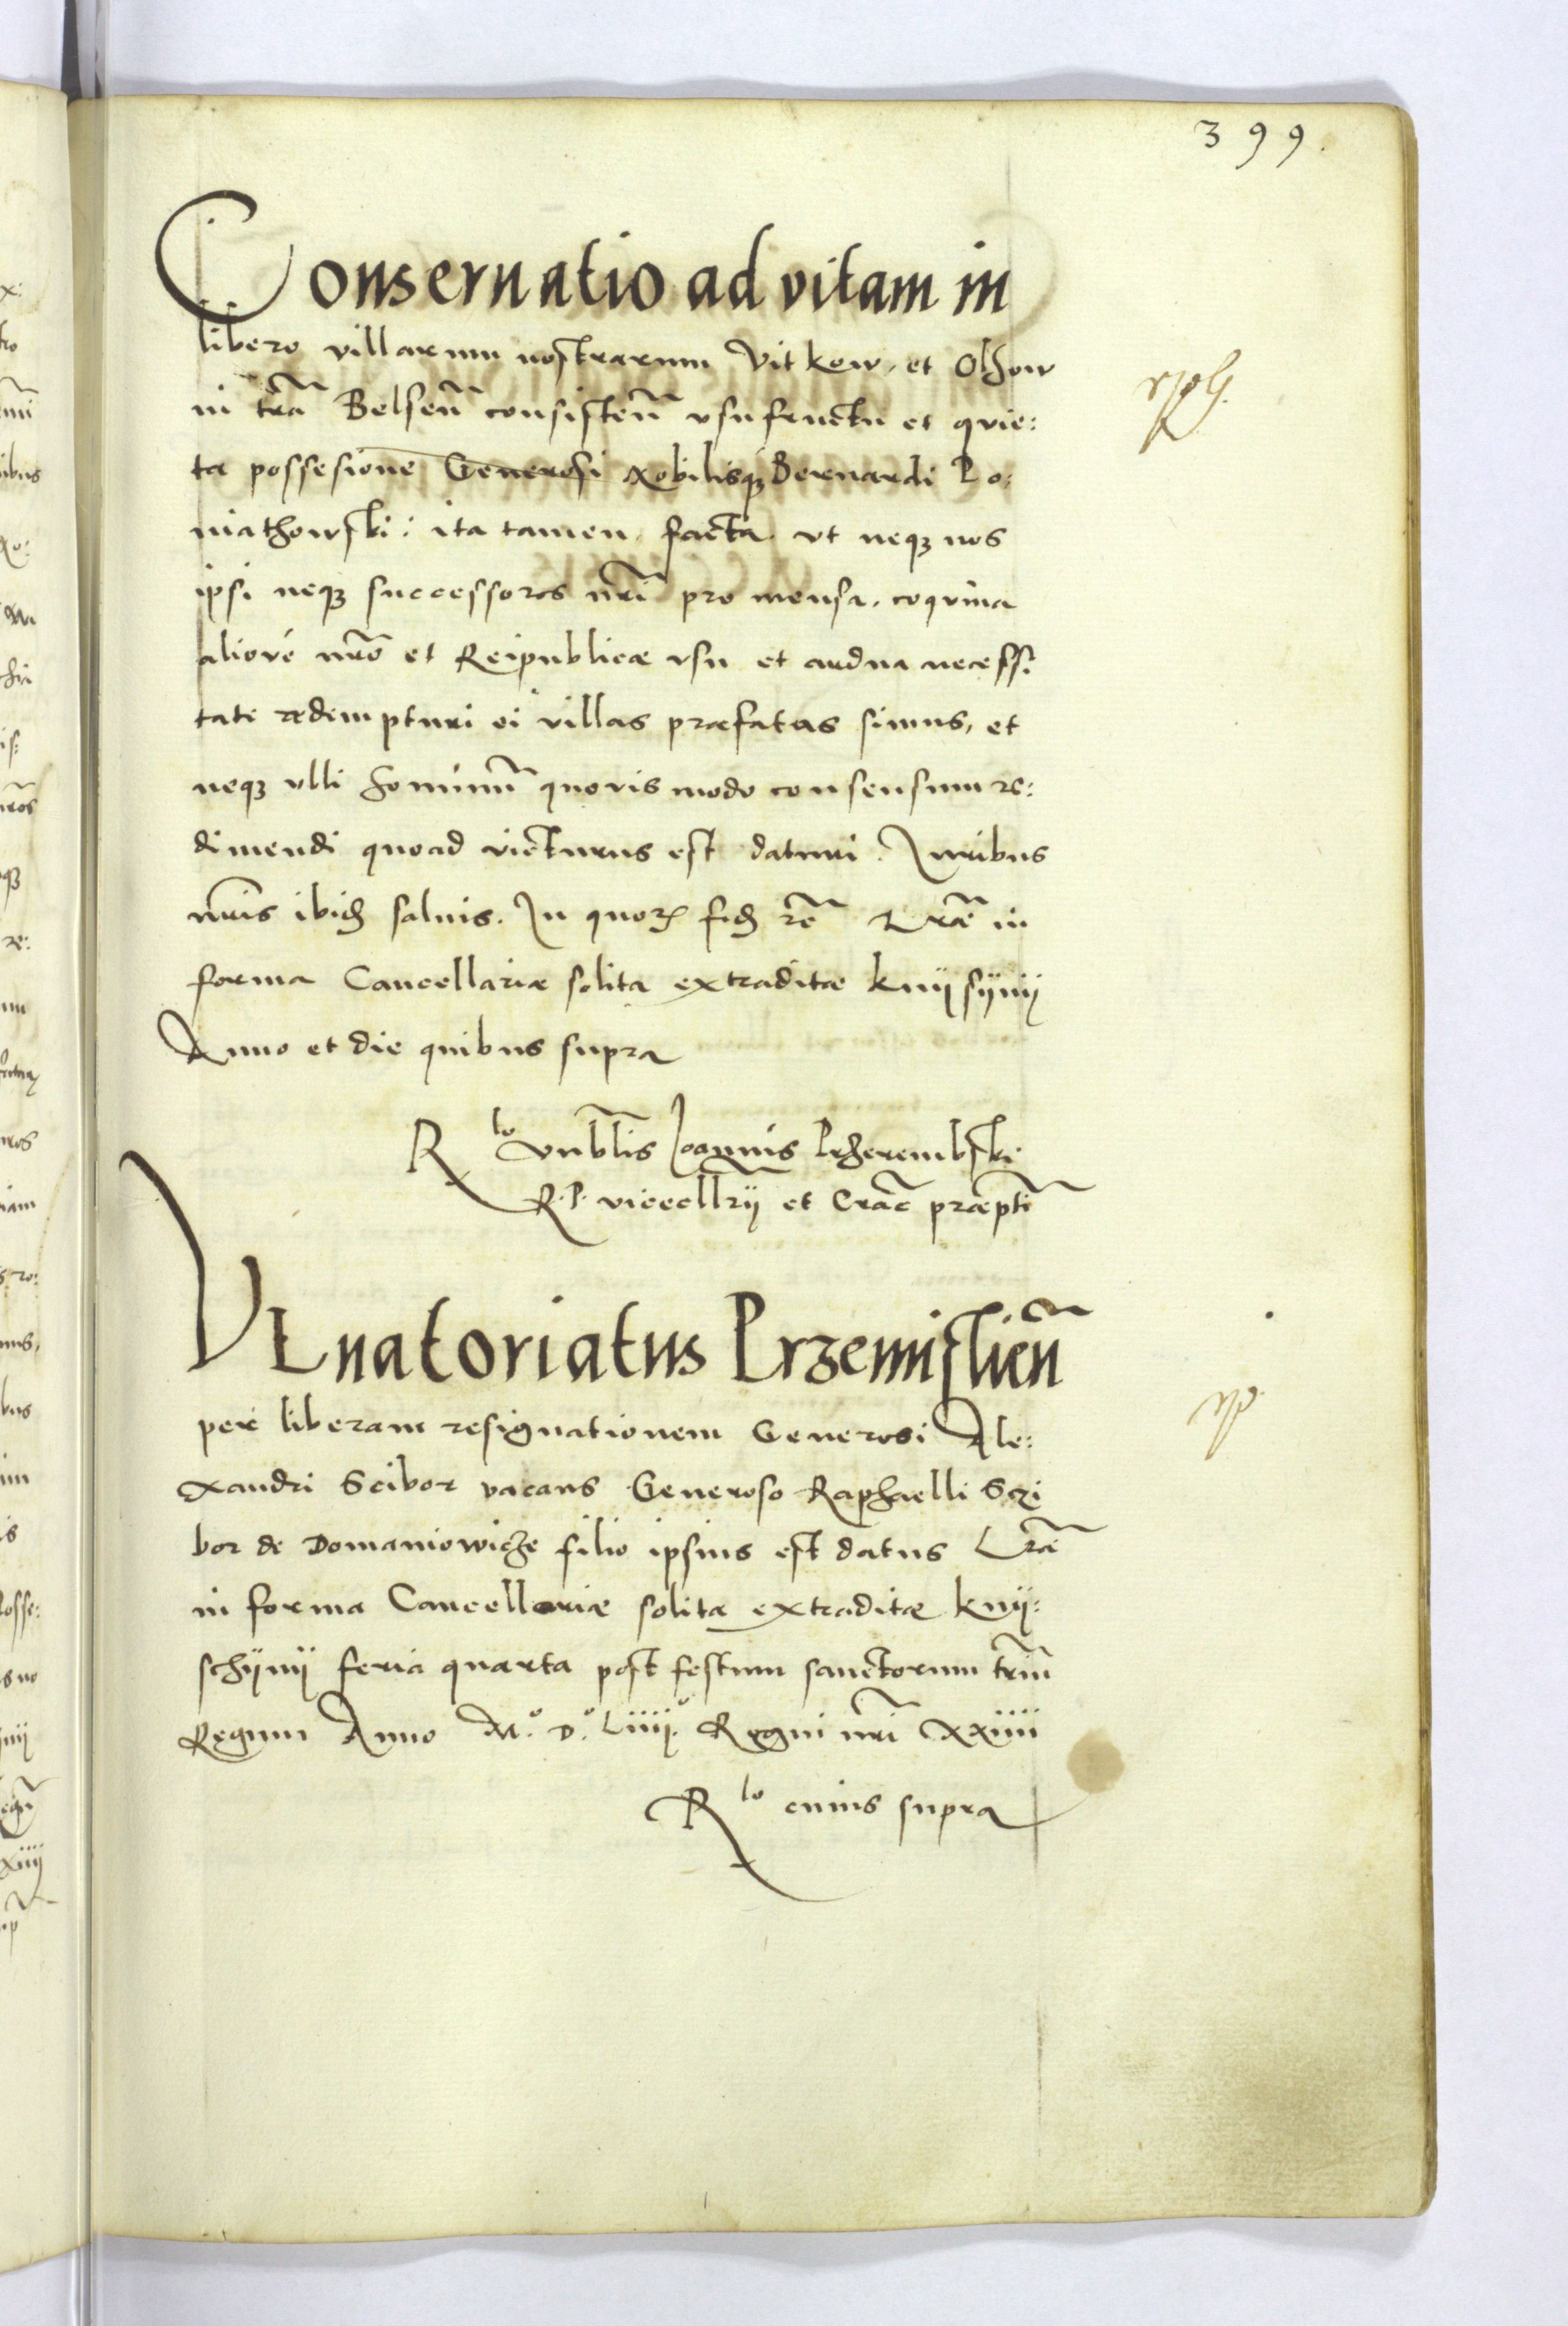 399.
Conseruatio ad vitam in
libero villarum nostrarum Vitkow, et Olhow
in trã Belseñ consisteñ vsufructu et quie:
ta possesione Generosi Nobilisqȝ Bernardi Po:
niathowski: ita tamen facta vt neqȝ nos
ipsi neqȝ successores nr̃i pro mensa, coquina
alioué nr̃o et Reipublicæ vsu et ardua necessi
tate redempturi ei villas præfatas simus, et
neqȝ vlli hominũ quouis modo consensum re:
dimendi quoad victurus est daturi. Iuribus
nr̃is ibid saluis. In quorꝝ fid rẽ Lr̃æ in
forma Cancellariæ solita extraditæ knÿsÿnÿ
Anno et die quibus supra
R lo Vnblis̃ Joannis Przerembski
R. P. vicecllrÿ et Crac̃ præpti
Vlnatoriatus Przemislieñ
per liberam resignationem Generosi Ale:
xandri Scibor vacans Generoso Raphaelli Sczi
bor de Domaniowicze filio ipsius est datus Lr̃æ
in forma Cancellariæ solita extraditæ knÿ:
schÿnÿ feria quarta post festum sanctorum triũ
Regum Anno M.° D.° Liiij.° Regni nr̃i xxiiii
R lo cuius supra